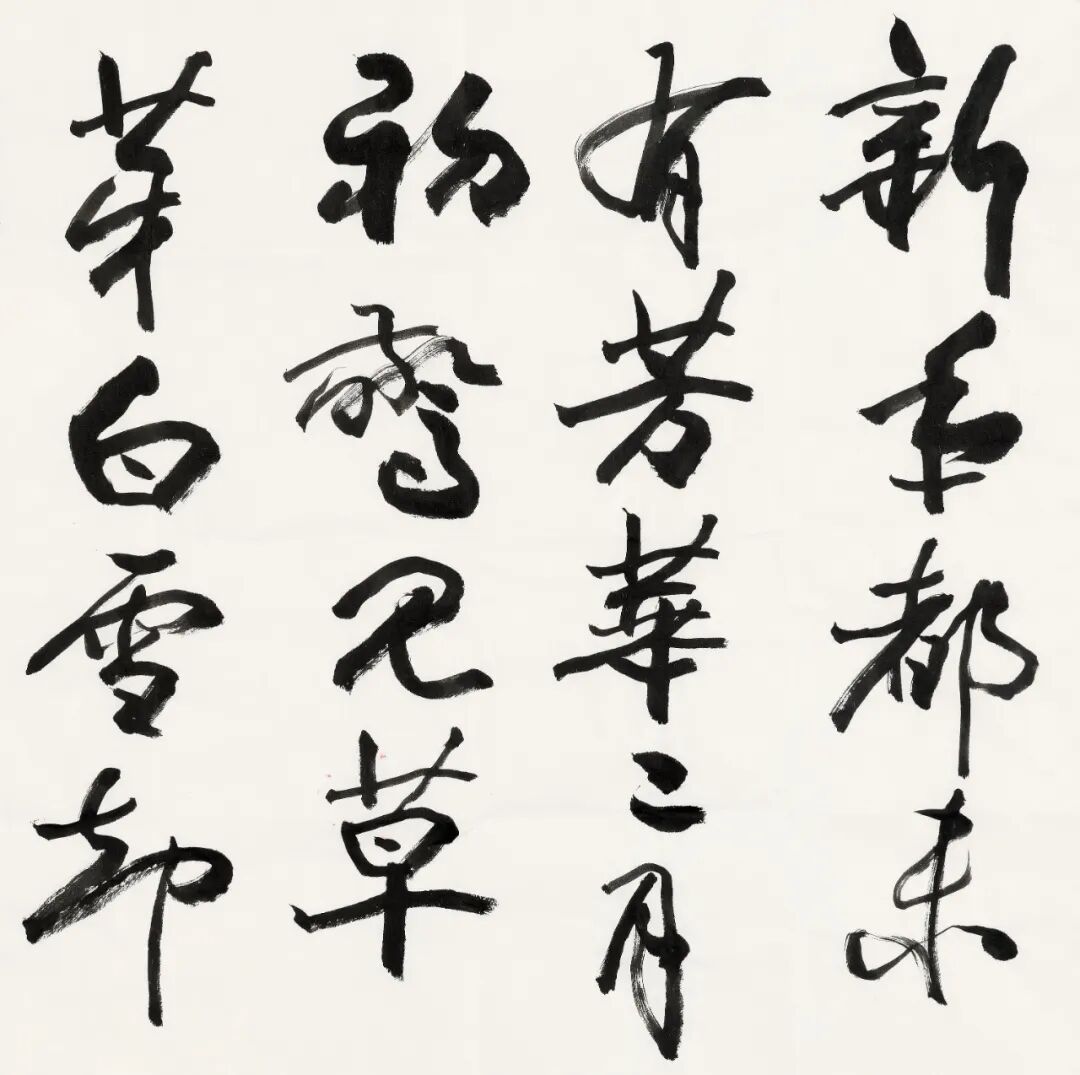 新年都未
有芳華二月
初驚見草
芽白雪却